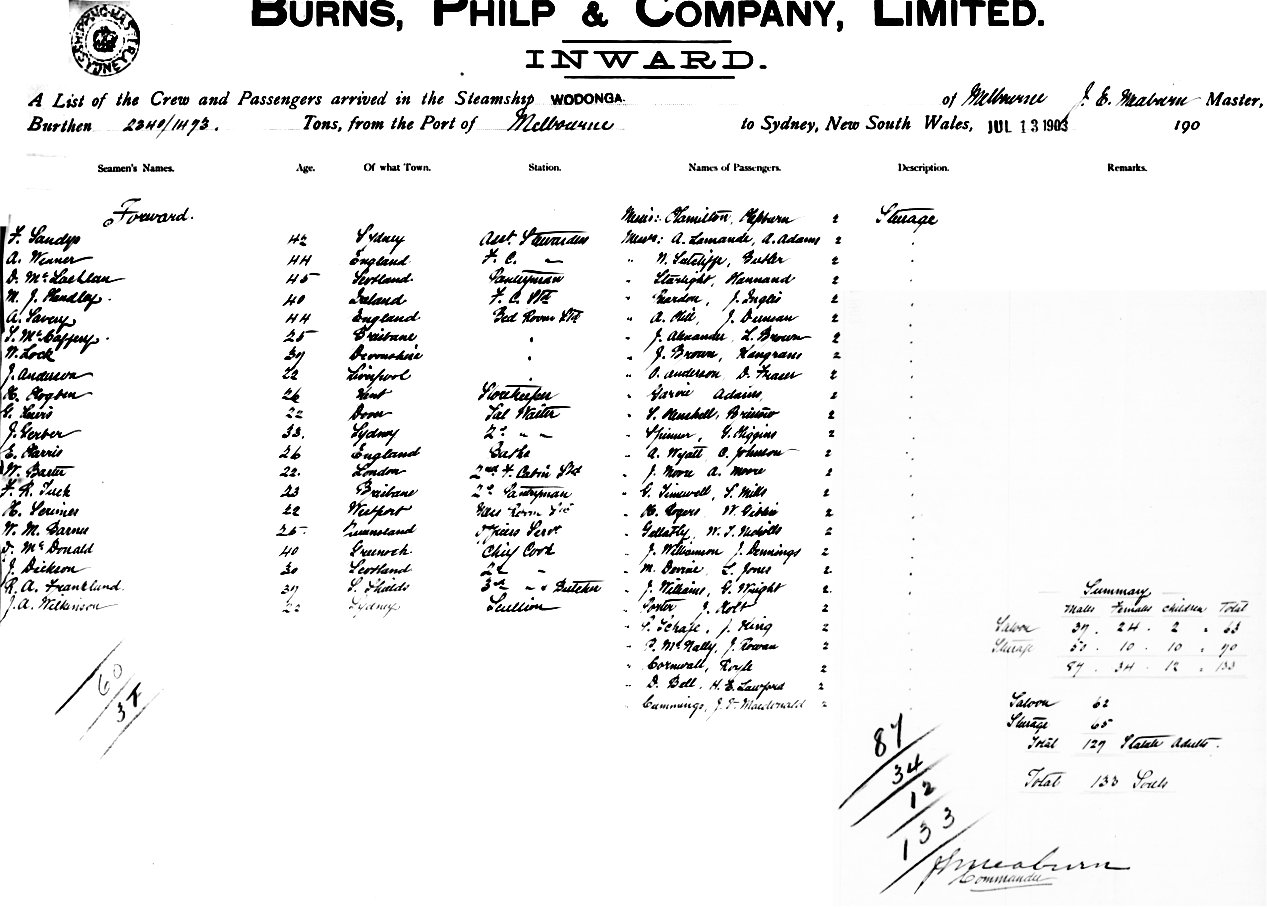 SHIPPING MASTER SYDNEY
BURNS, PHILP & COMPANY, LIMITED.
INWARD.
A List of the Crew and Passengers arrived in the Steamship WODONGA. of Melbourne J. E. Meaburn Master,
Burthen 2340/1493. Tons, from the Port of Melbourne to Sydney, New South Wales, JUL 13 1903 190
Seamen's Names. Age. Of what Town. Station. Names of Passengers. Description. Remarks.
Forward. Messrs: Hamilton, Hepburn 2 Steerage
F. Sandys 42 Sydney Asst. Messrs: A. Lamande, A. Adams 2
A. Winner 44 England F. C. " N. Sutcliffe, Butler 2
D. McLachlan 45 Scotland Pantryman " Starlight, Hannand 2
M. J. Handley. 40 Ireland F. C. Std " J. Inglis 2
A. Savery 44 England Bed Room Std " A. Hill, J. Duncan 2
S. McCaffery. 25 Brisbane " " J. Alexander, L. Brown 2
N. Lock 39 Devonshire " " J. Brown, 2
J. Anderson 22 Liverpool " O. Anderson D. Fraser 2
H. Hogben 26 Kent Storekeeper " Garvie Adams, 2
G. Lewis 22 Dover Sal Waiter " S. Henshell, Bristow 2
J. Gerber 33. Sydney 2nd " " " Spinner, G. Higgins 2
E. Harris 26 England Baths " A. Wyatt C. Johnson 2
W. Baster 22. London 2nd F. Cabin Std " J. Moore A. Moore 2
F. R. Tuck 23 Brisbane 2nd Pantryman " G. Timewell, S. Mills 2
H. 22 Westport Mess Room Std " H. Rogers W. Gibbs 2
W. M. Barnes 25 Queensland Officers Servt " Gellatly, W. J. Nicholls 2
D. McDonald 40 Greenock Chief Cook " J. Williamson J. Dennings 2
J. Dickson 30 Scotland 2nd " " M. Devine, L. Jones 2
R. A. Frankland 37 S. Shields 3rd " & Butcher " J. Williams, G. Wright 2
J. A. Wilkinson 22 Sydney Scullion " Porter J. Holt 2
" P. Schafe, J. King 2
" P. McNally, J. Rowan 2
" Cornwall, Royle 2
" D. Bell, H. E. Lawford 2
" Cummings, J. F. Macdonald 2
60
37
Summary
Males Females children Total
Saloon 37 . 24 . 2 . 63
Steerage 50 . 10 . 10 . 70
87 . 34 . 12 . 133
Saloon 62
Steerage 65
Total 127 Statute Adults.
Total 133 Souls
87
34
12
133
J. E. Meaburn
Commander